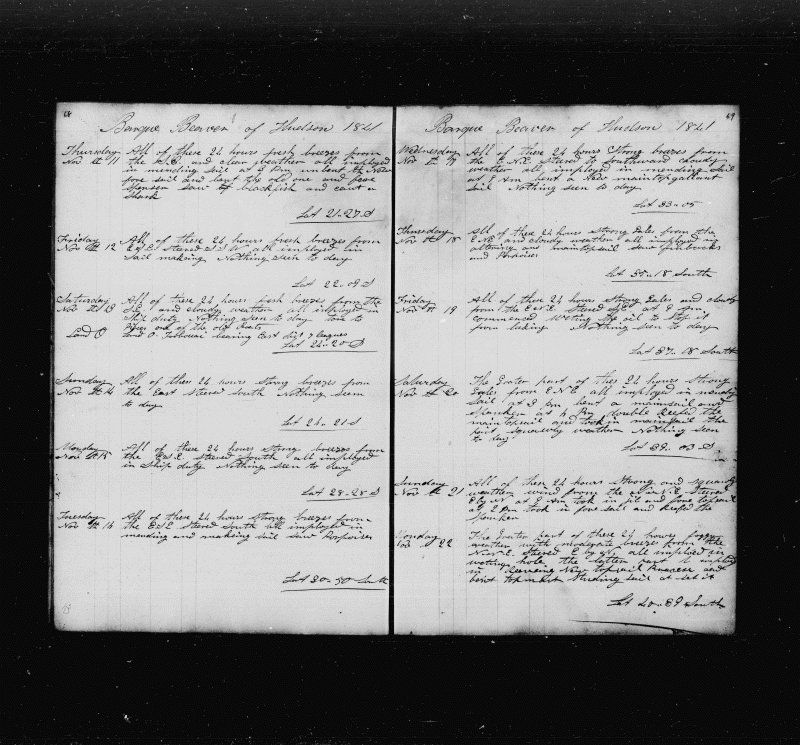 68
Barque Beaver of Hudson 1841
Thursday All of these 24 hours fresh breezes from
Nov th 11 the S.E. and clear weather all imployed
in mending sail at 2 Pm unbent the New
fore sail and bent the old one and fore
Spenser saw blackfish and caut a
Shark
Lat 21-27 S
Friday All of these 24 hours fresh breezes from
Nov th 12 all imployed in
sail making Nothing seen to day
Lat 22-09 S
Saturday All of these 24 hours fresh breezes from the
Nov th 13 S.E. and cloudy weather all imployed in
ship duty Nothing seen to day
one of the old
Land O bearing East dist 7 leagues
Lat 22-20 S
Sunday All of these 24 hours strong breezes from
Nov th 14 the East stered South Nothing seen
to day
Lat 24-21 S
Monday All of these 24 hours strong breezes from
Nov th 15 the ESE stered South all imployed
in Ship duty Nothing seen to day
Lat 28-28 S
Tuesday All of these 24 hours Strong breezes from
Nov th 16 the ESE stered South all imployed in
mending and making sail saw Porpoises
Lat 30-50 South
69
Barque Beaver of Hudson 1841
Wednesday All of these 24 hours Strong breezes from
Nov th 17 the E.N.E. stered to southward cloudy
weather all imployed in mending sail
at 8 Am bent a New maintopgallant
sail Nothing seen to day
Lat 33-05
Thursday All of these 24 hours strong Gales from the
Nov th 18 E.N.E. and cloudy weather all imployed in
altering maintopsail saw finbacks
and Porpoises
Lat 35-18 South
Friday All of these 24 hours Strong Gales and cloudy
Nov th 19 from the E.N.E. Stered S.E. at 9 pm
commenced Weting the oil to stop it
from leking Nothing seen to day
Lat 37-18 South
Saturday The Grater part of thes 24 hours Strong
Nov th 20 Gales from E.N.E all imployed in mending
sail at 3 Pm bent a mainsail and
spanker at 4 Pm double reefed the
maintopsail and took in mainsail the
last squerly weather Nothing seen
to day
Lat 39-03 S
Sunday All of these 24 hours Strong and squawly
Nov th 21 weathers wind from the N.N.E. Stered
E by S at 8 Am took in jib and fore topsail
at 2 Pm took in fore sail and reefed the
spanker
Monday The Grater part of these 24 hours foggy
Nov th 22 weather with moderate breezes from the
N.N.E. Stered E by S all imployed in
weting hole the latter part imployed
in Reeveing New topsail Braces and
bent topmast studing sail at set it
Lat 40-39 South